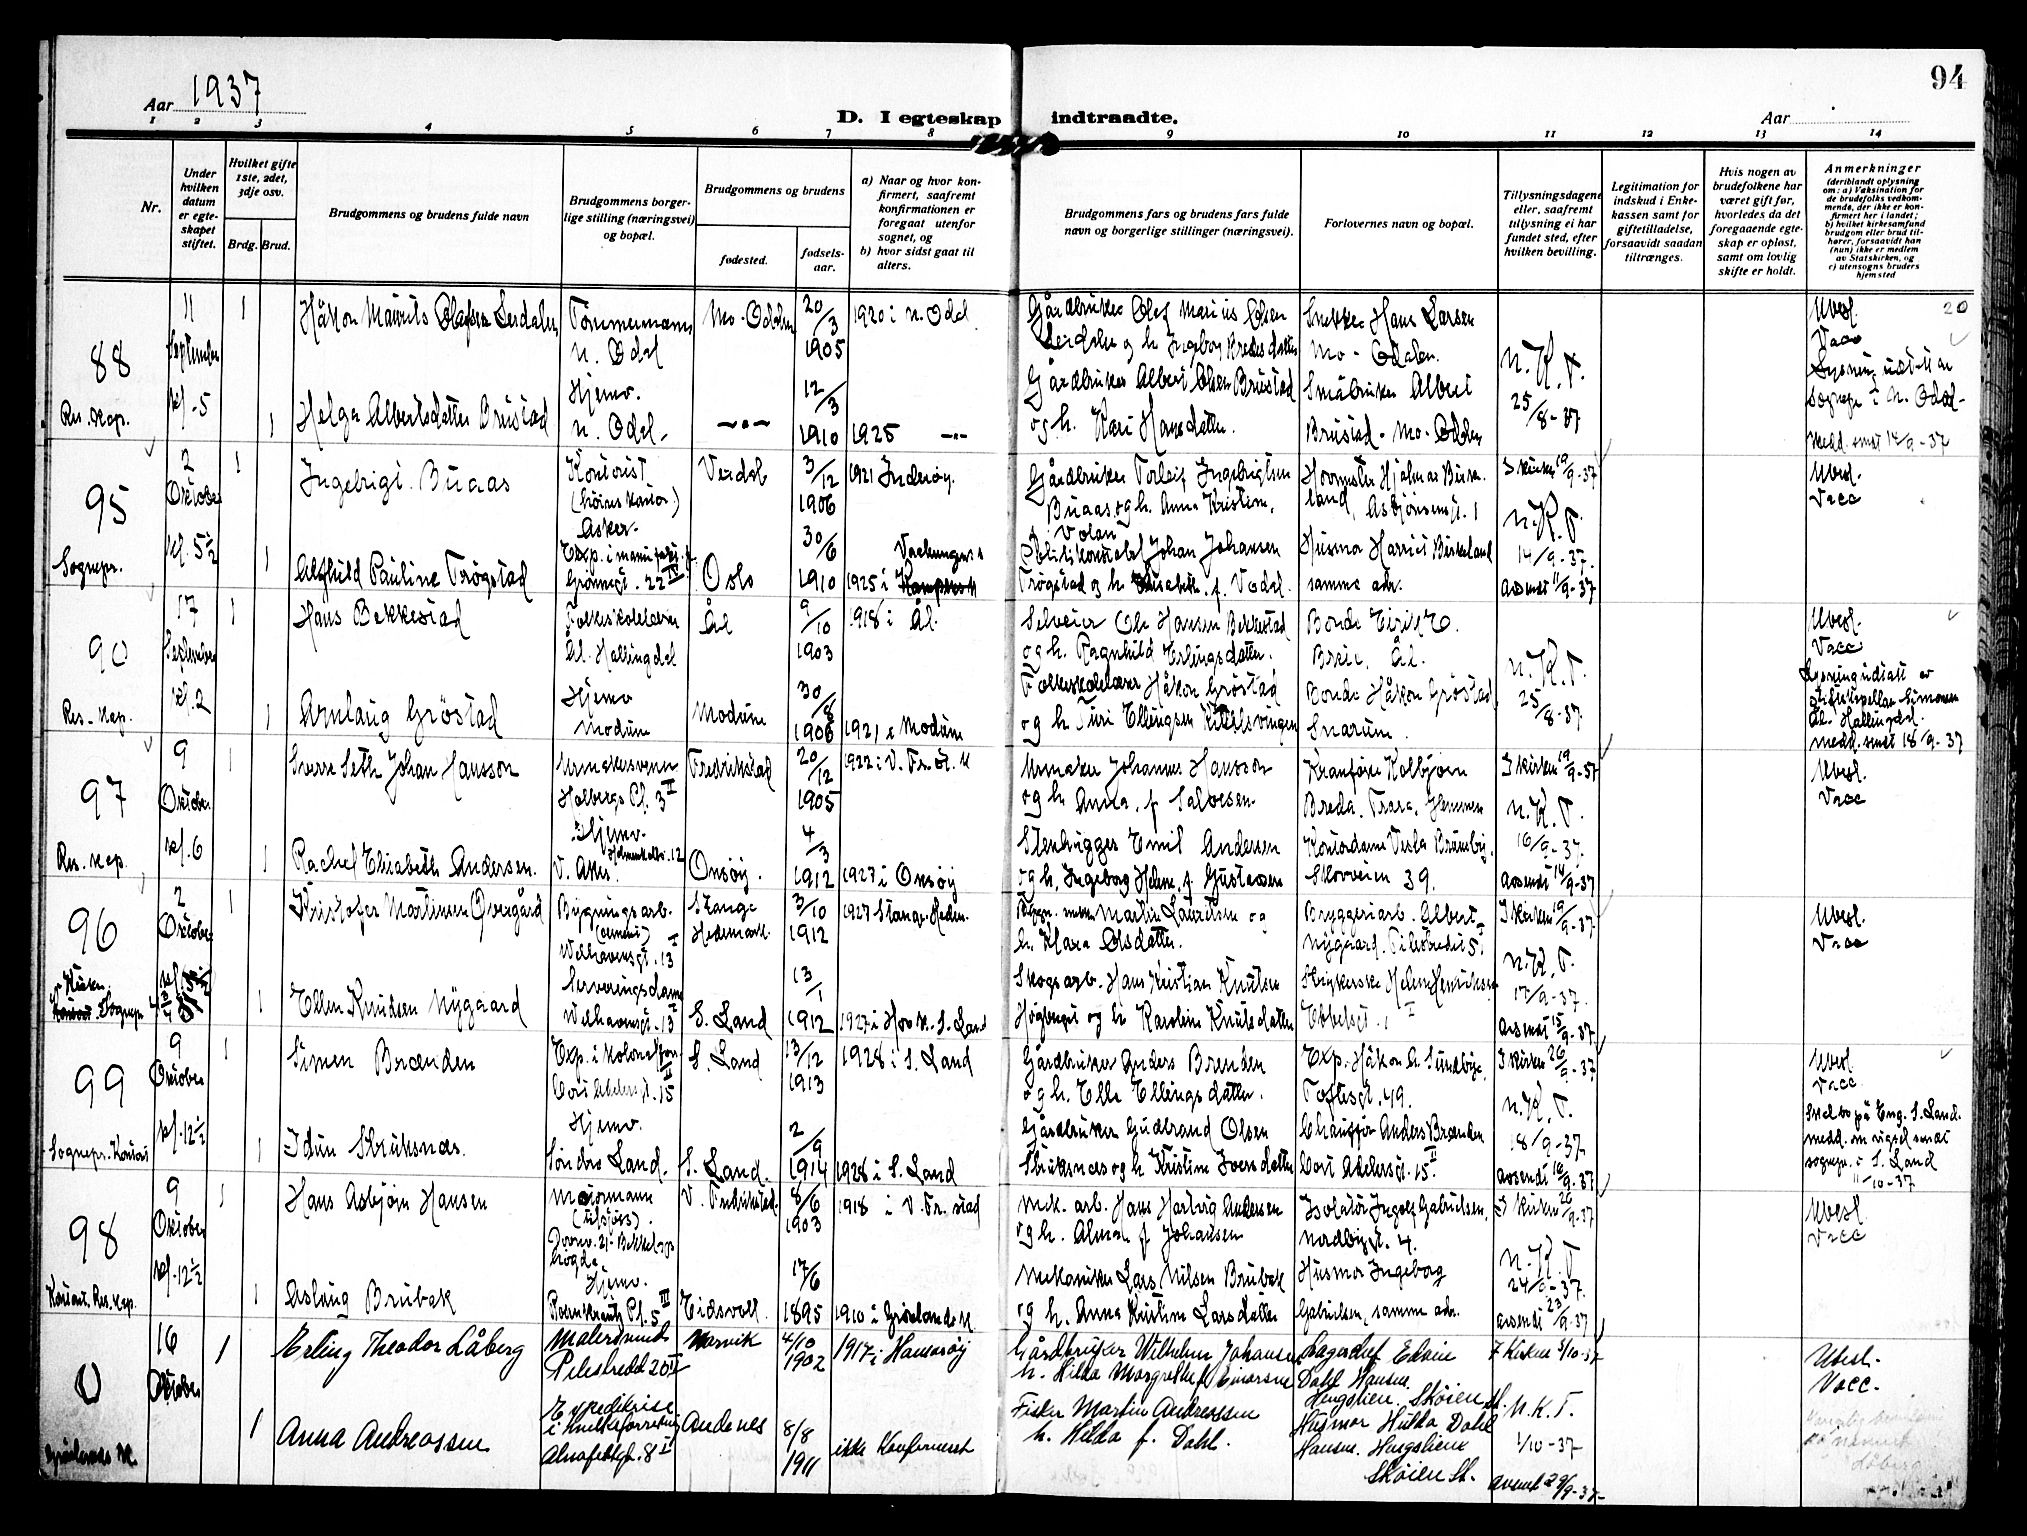 94
Aar 1937
D. I egteskap indtraadte.
Aar
1 2 3 4 5 6 7 8 9 10 11 12 13 14
Nr.
Under hvilken datum er egteskapet stiftet.
Hvilket gifte 1ste, 2det, 3dje osv.
Brdg. Brud.
Brudgommens og brudens fulde navn
Brudgommens borgerlige stilling (næringsvei) og bopæl.
Brudgommens og brudens
fødested.
fødselsaar.
a) Naar og hvor konfirmert, saafremt konfirmationen er foregaat utenfor sognet, og
b) hvor sidst gaat til alters.
Brudgommens fars og brudens fars fulde navn og borgerlige stillinger (næringsvei).
Forlovernes navn og bopæl.
Tillysningsdagene eller, saafremt tillysning ei har fundet sted, efter hvilken bevilling.
Legitimation for indskud i Enkekassen samt for giftetilladelse, forsaavidt saadan tiltrænges.
Hvis nogen av brudefolkene har været gift før, hvorledes da det foregaaende egteskap er opløst, samt om lovlig skifte er holdt.
Anmerkninger
(deriblandt oplysning om: a) Vaksination for de brudefolks vedkommende, der ikke er konfirmert her i landet; b) hvilket kirkesamfund brudgom eller brud tilhører, forsaavidt han (hun) ikke er medlem av Statskirken, og c) utensogns bruders hjemsted
88
Res. kap.
11 September kl. 5
1
Håkon Maurits Olafsen Lerdalen
Tømmermann
N. Odal
Mo-Odalen
20/3 1905
1920 i N. Odal
Gårdbruker Olef Marius Olsen
Lerdalen og h. Ingebor Bredesdatter
Snekker Hans Larsen
Mo-Odalen.
N.K.T.
25/8-37
Ubesl.
Vacc
20
1
Helga Albertsdatter Brustad
Hjemv.
N. Odal
12/3 1910
1925
Gårdbruker Albert Olsen Brustad
og h. Kari Hansdatter.
Småbruker Albert
Brustad-Mo-Odalen
sogne i N. Odal-
Medd. sendt 14/9-37
95
Sognepr.
2 Oktober kl. 5½
1
Ingebrigt Buaas
Kontorist
Asker.
Verdal
3/12 1906
1921 Inderøy.
Gårdbruker Torleif Ingebrigtsen
Buaas og h. Anna Kristine,
f. Volan
Hovmester Hjalmar Birkeland,
Asbjørnsensgt. 1
I kirken 19/9-37
N.K.T.
14/9-37.
Avsendt 11/9-37
Ubesl.
Vacc
1
Alfhild Pauline Trøgstad
Exp. i manufakt. f.
Grønnegt. 22 IV
Oslo
30/6 1910
1925 i Kampens k
Politikonstabel Johan Johansen
Trøgstad og h. Elisabeth f. Vadel.
Husmor Harriet Birkeland
samme adr.
90
Res. kap.
17 September kl. 2
1
Hans Bekkestad
Folkeskolelærer
Ål. Hallingdal
Ål
9/10 1903
1918 i Ål.
Selveier Ole Hansen Bekkestad
og h. Ragnhild Erlingsdatter.
Bonde Eirik E.
Breie, Ål.
N.K.T.
25/8-37.
Ubesl.
Vacc
Lysning utstedt av
stiftskapellan Simonsen
Ål. Hallingdal
medd. sendt 18/9-37
1
Arnlaug Grøstad
Hjemv
Modum
Modum
30/8 1906
1921 i Modum
Folkeskolelærer Håkon Grøstad
og h. Turi Ellingsen Kittelsvingen
Bonde Håkon Grøstad
Snarum.
97
Res. kap.
9 Oktober kl. 6
1
Sverre Seth Johan Hansson
Urmakersvenn
Holbergs Pl. 3 II
Fredrikstad
20/12 1905
1922 i V. Fr.st. k
Urmaker Johannes Hansson
og h. Anna, f. Salvesen
Kranfører Kolbjørn
Breda. Trara, Glemmen
I kirken 19/9-37
N.K.T.
16/9-37.
Avsendt 14/9-37
Ubesl.
Vacc
1
Rachel Elisabeth Andersen.
Hjemv.
Holmenkollv. 12
V. Aker.
Onsøy.
4/3 1912
1927 i Onsøy
Stenhugger Emil Andersen
og h. Ingeborg Helene, f. Gustavsen
Kontordame Vesla Brundby.
Skovveien 39.
96
Kirken
Sognepr
2 Oktober
1
Kristofer Martinsen Øvergård
Bygningsarb.
(cement)
Welhavensgt. 13 I
Stange
Hedemark.
3/10 1912
1927 Stange. Hedm.
Martin Lauritsen og
h. Klara Olsdatter.
Bryggeriarb. Albert
Nygaard. Pilestredet 5
I kirken 19/9-37
N.K.T.
17/9-37.
Avsendt 15/9-37
Ubesl.
Vacc
1
Ellen Knudsen Nygaard
Serveringsdame
Welhavensgt. 13 I
S. Land
13/1 1912
1927 i Hov k. S. Land
Skogsarb. Hans Kristian Knutsen
Høgberget og h. Karoline Knutsdatter
Strykerske Helene Henriksen
99
Sognepr. Kontor
9 Oktober kl. 12½
1
Simen Brænden
Exp. i kolonialforr.
Cort Adelersgt. 15
S. Land
13/12 1913
1928 i S. Land
Gårdbruker Anders Brenden
og h. Elle Ellingsdatter.
Exp. Håkon A. Sundbye,
Toftesgt. 49.
I kirken 26/9-37
N.K.T.
18/9-37
Avsendt 16/9-37
Ubesl.
Vacc.
Skal bo på Eng. S. Land.
medd. om vigsel sendt
sognepr. i S. Land
11/10-37
1
Idun Struksnæs.
Hjemv.
Søndre Land.
S. Land.
2/9 1914
1928 i S. Land
Gårdbruker Gudbrand Olsen
Struksnæs og h. Kristine Iversdatter
Chauffør Anders Brænden
Cort Adelersgt. 15 II
98
Kontor. Res. kap.
9 Oktober kl. 12½
1
Hans Asbjørn Hansen
Motormann
(utsjøs).
Doonv. 21-Bekkelagshøgda
V. Fredrikstad.
8/6 1903
1918 i V. Fr. stad
Mek. arb. Hans Hartvig Andersen
og h. Alma f. Johansen
Isolatør Ingolf Gabrielsen,
Nordbygt. 4.
I kirken 26/9-37
N.K.T
24/9-37.
avsendt 23/9-37
Ubesl.
Vacc
1
Aslaug Brubak
Hjemv.
Rosenkrantz Pl. 5 III
Eidsvoll
17/6 1895
1910 i Grønlands k
Mekaniker Lars Nilsen Brubak
og h. Anna Kristine Larsdatter
Husmor Ingeborg
Gabrielsen, samme adr.
0
Grønlands k.
16 Oktober
1
Erling Theodor Låberg
Malersvend
Pilestredd 20 II
Narvik
4/10 1902
1917 i Hamarøy
Gårdbruker Wilhelm Johansen
h. Hilda Margrethe f. Einarsen
Lagersjef Edvin
Dahl Hansen.
Hengslien. Skøien st.
I Kirken 3/10-37
N.K.T.
1/10-37
Avsendt 29/9-37-
Ubesl.
Vacc.
Låberg
1
Anna Andreassen
Expeditrise
i Melkeforretning
Almafeldtgt. 8 I
Andenes
8/8 1911
ikke Konfirmert
Fisker Martin Andreassen
h. Hilda f. Dahl.
Husmor Hulda Dahl
Hansen, Hengslien
Skøien St.